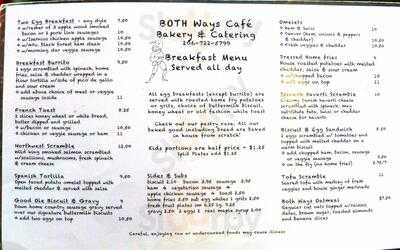 Two Egg Breakfast - any style 7.50
w/bacon
or 2 pork link sausages 10
w/2 chicken apple sausage 10.50
ham steak 10.50
w/morning star veggie sausage 10.50
Breakfast Burrito
2 eggs scrambled with spinach, home
fries, salsa & cheddar wrapped in a
flour tortilla w/side of pico de gallo
and sour cream
add above choice of meat or veggie
sausage inside 11
French Toast 8.50
2 slices honey wheat or white bread,
butter dipped and grilled
w/bacon or sausage 10.50
w/chicken or veggie sausage or ham 11
Northwest Scramble 12.00
wild king smoked salmon scrambled
w/scallions, mushrooms, fresh spinach
& cream cheese
Spanish Tortilla 9.50
Open faced potato omelet topped with
melted cheddar & served with salsa
Good Ole Biscuit & Gravy 9
Down home country sausage gravy served
over our signature buttermilk biscuits
add two eggs on top 10.50
BOTH Ways Café
Bakery & Catering
206-722-5799
Breakfast Menu
Served all day
All egg breakfasts (except burrito) are
served with roasted home fry potatoes
or grits, choice of buttermilk biscuit,
honey wheat or old fashion white toast
Check out our pastry case. All our
baked goods including bread are baked
in house from scratch!
Kids portions are half price + $1.25
Split Plates add $1.25
Sides & Subs
Biscuit 2.50 Bacon 3.50
ham 4 vegetarian sausage 4
apple chicken sausage 4 toast 2.50
home fries 2.50 sub egg whites 1
fresh fruit 2.50 sub fruit 2.50
gravy 2.50 2 eggs 3 real maple syrup 1.00
Omelets
ham & Swiss 10
Denver (ham, onions & peppers
& cheddar) 10.50
Fresh veggies & cheddar 10.50
Dressed Home fries 9
House roasted potatoes with melted
cheddar, salsa & sour cream
w/chopped bacon 10
w/2 eggs on top 11
Spinach Favorite Scramble
cream cheese
scrambled with spinach; may
substitute feta, salsa or cheddar and
sour cream
Biscuit & Egg Sandwich 8.50
2 eggs scrambled w/ tomatoes and
topped with melted cheddar on a
warm biscuit
add chopped ham, bacon, sausage
or veggie sausage
on the fly (no home fries)
Tofu Scramble 9.50
Seared tofu with medley of fresh
veggies and house ginger marinade
Both Ways Oatmeal
Steel cut oats topped w/raisins,
dates, brown sugar, toasted almonds
and banana slices
Careful, enjoying raw or undercooked foods may cause illness